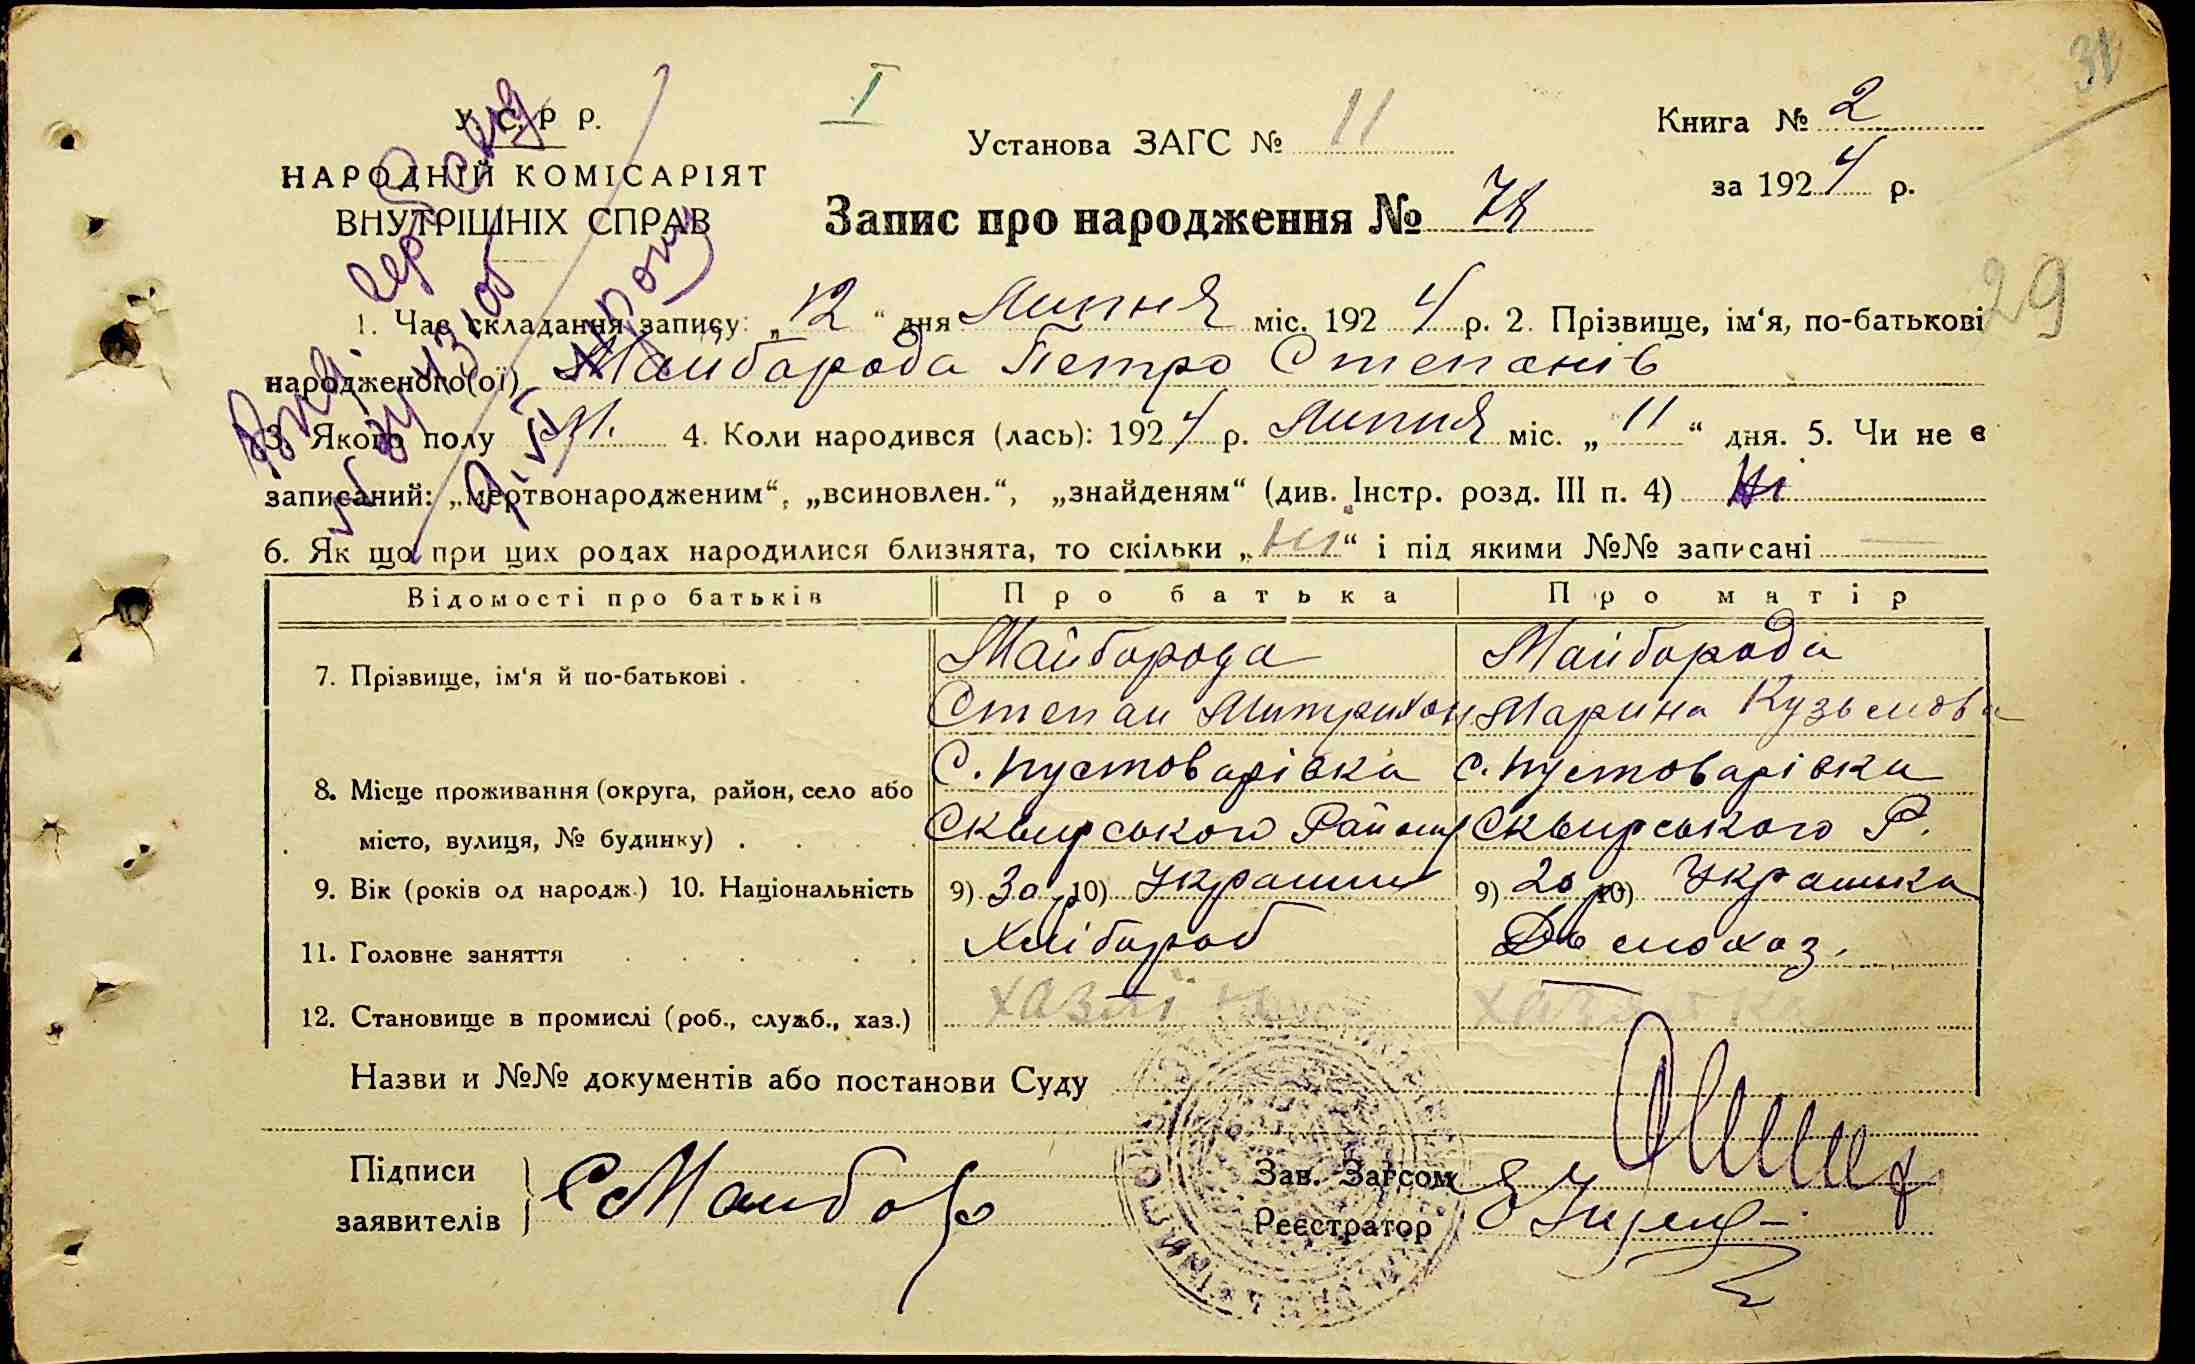 31
У. С. Р Р.
I
Установа ЗАГС № 11
Книга № 2
НАРОДНІЙ КОМІСАРІЯТ
за 1924 р.
ВНУТРІШНІХ СПРАВ
Запис про народження №
29
1. Час складання запису: „12“ дня Липня міс. 1924 р. 2. Прізвище, ім‘я, по-батькові
народженого(ої) Майборода Петро Степанів
3. Якого полу М. 4. Коли народився (лась): 1924 р. Липня міс. „11“ дня. 5. Чи не є
записаний: „мертвонародженим“, „всиновлен.“, „знайденям“ (див. Інстр. розд. III п. 4) Ні
6. Як що при цих родах народилися близнята, то скільки „ні“ і під якими №№ записані —
Відомості про батьків Про батька Про матір
7. Прізвище, ім‘я й по-батькові . Майборода Майборода
Степан Марина Кузьмова
С. Пустоварівка с. Пустоварівка
8. Місце проживання (округа, район, село або
місто, вулиця, № будинку) . Сквирського Району Сквирського Р.
9. Вік (років од народж.) 10. Національність 9) 30 р 10) Украинец 9) 20 р 10) Украинка
11. Головне заняття Хлібороб Домохоз.
12. Становище в промислі (роб., служб., хаз.) хазяїн хазяйка
Назви и №№ документів або постанови Суду
Підписи
заявителів
С Майбор
Зав. Загсом
Реєстратор